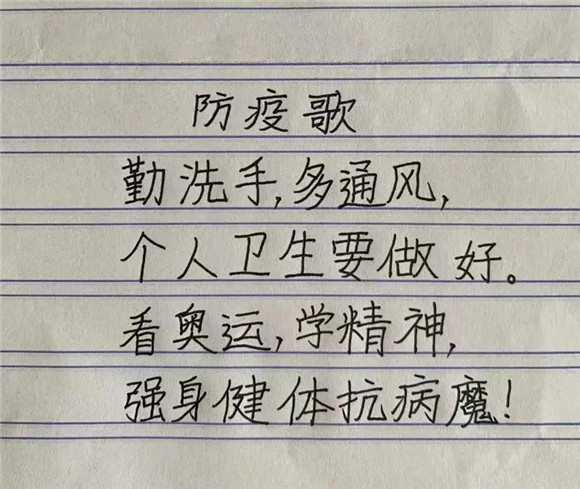 防疫歌
勤洗手,多通风,
个人卫生要做好。
看奥运,学精神,
强身健体抗病魔!